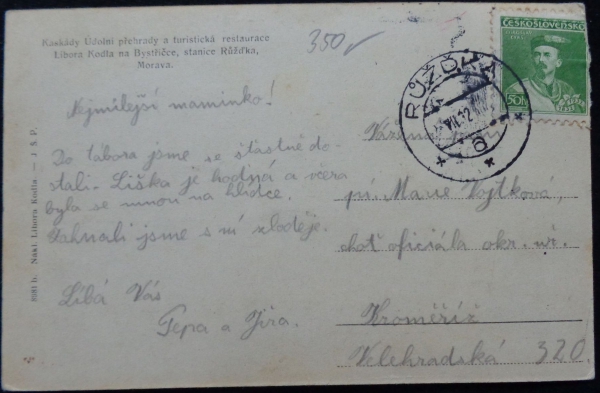 Kaskády Údolní přehrady a turistická restaurace
Libora Kodla na Bystřičce, stanice Růžďka,
Morava.
350
ČESKOSLOVENSKO
50h
RŮŽĎKA
a
Nejmilejší maminko!
Do tábora jsme se šťastně do-
stali. Liška je hodná a včera
byla se mnou na hlídce.
Zahnali jsme s ní zloděje.
Líbá Vás
Pepa a Jira.
Vážená paní
pí. Marie Vojtková,
choť oficiála okr. úř.
Kroměříž
Velehradská 320.
8091 b. Nákl. Libora Kodla. — J. Š. P.